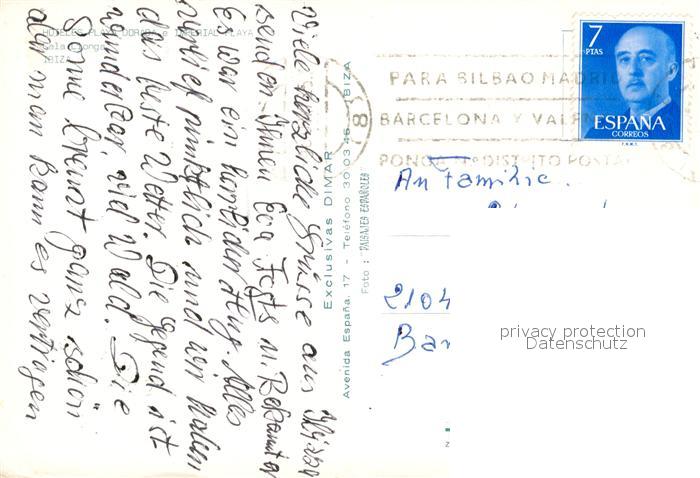 HOTELES PLAYA DORADA e IMPERIAL PLAYA
Cala Llonga
IBIZA
Viele herzliche Grüsse aus Ibiza
senden Ihnen Eva u. Bekannte
Es war ein herrlicher Flug. Alles
verlief pünktlich und wir haben
das beste Wetter. Die Gegend ist
wunderbar, viel Wald. Die
Sonne brennt ganz schön
aber man kann es vertragen
Exclusivas DIMAR
Avenida España, 17 - Teléfono 30 03 46 - IBIZA
Foto: "PAISAJES ESPAÑOLES"
PARA BILBAO MADRID
BARCELONA Y VALEN
PONGA DISTRITO POSTAL
7
PTAS
ESPAÑA
CORREOS
F.N.M.T.
An Familie
2104
Bar
privacy protection
Datenschutz